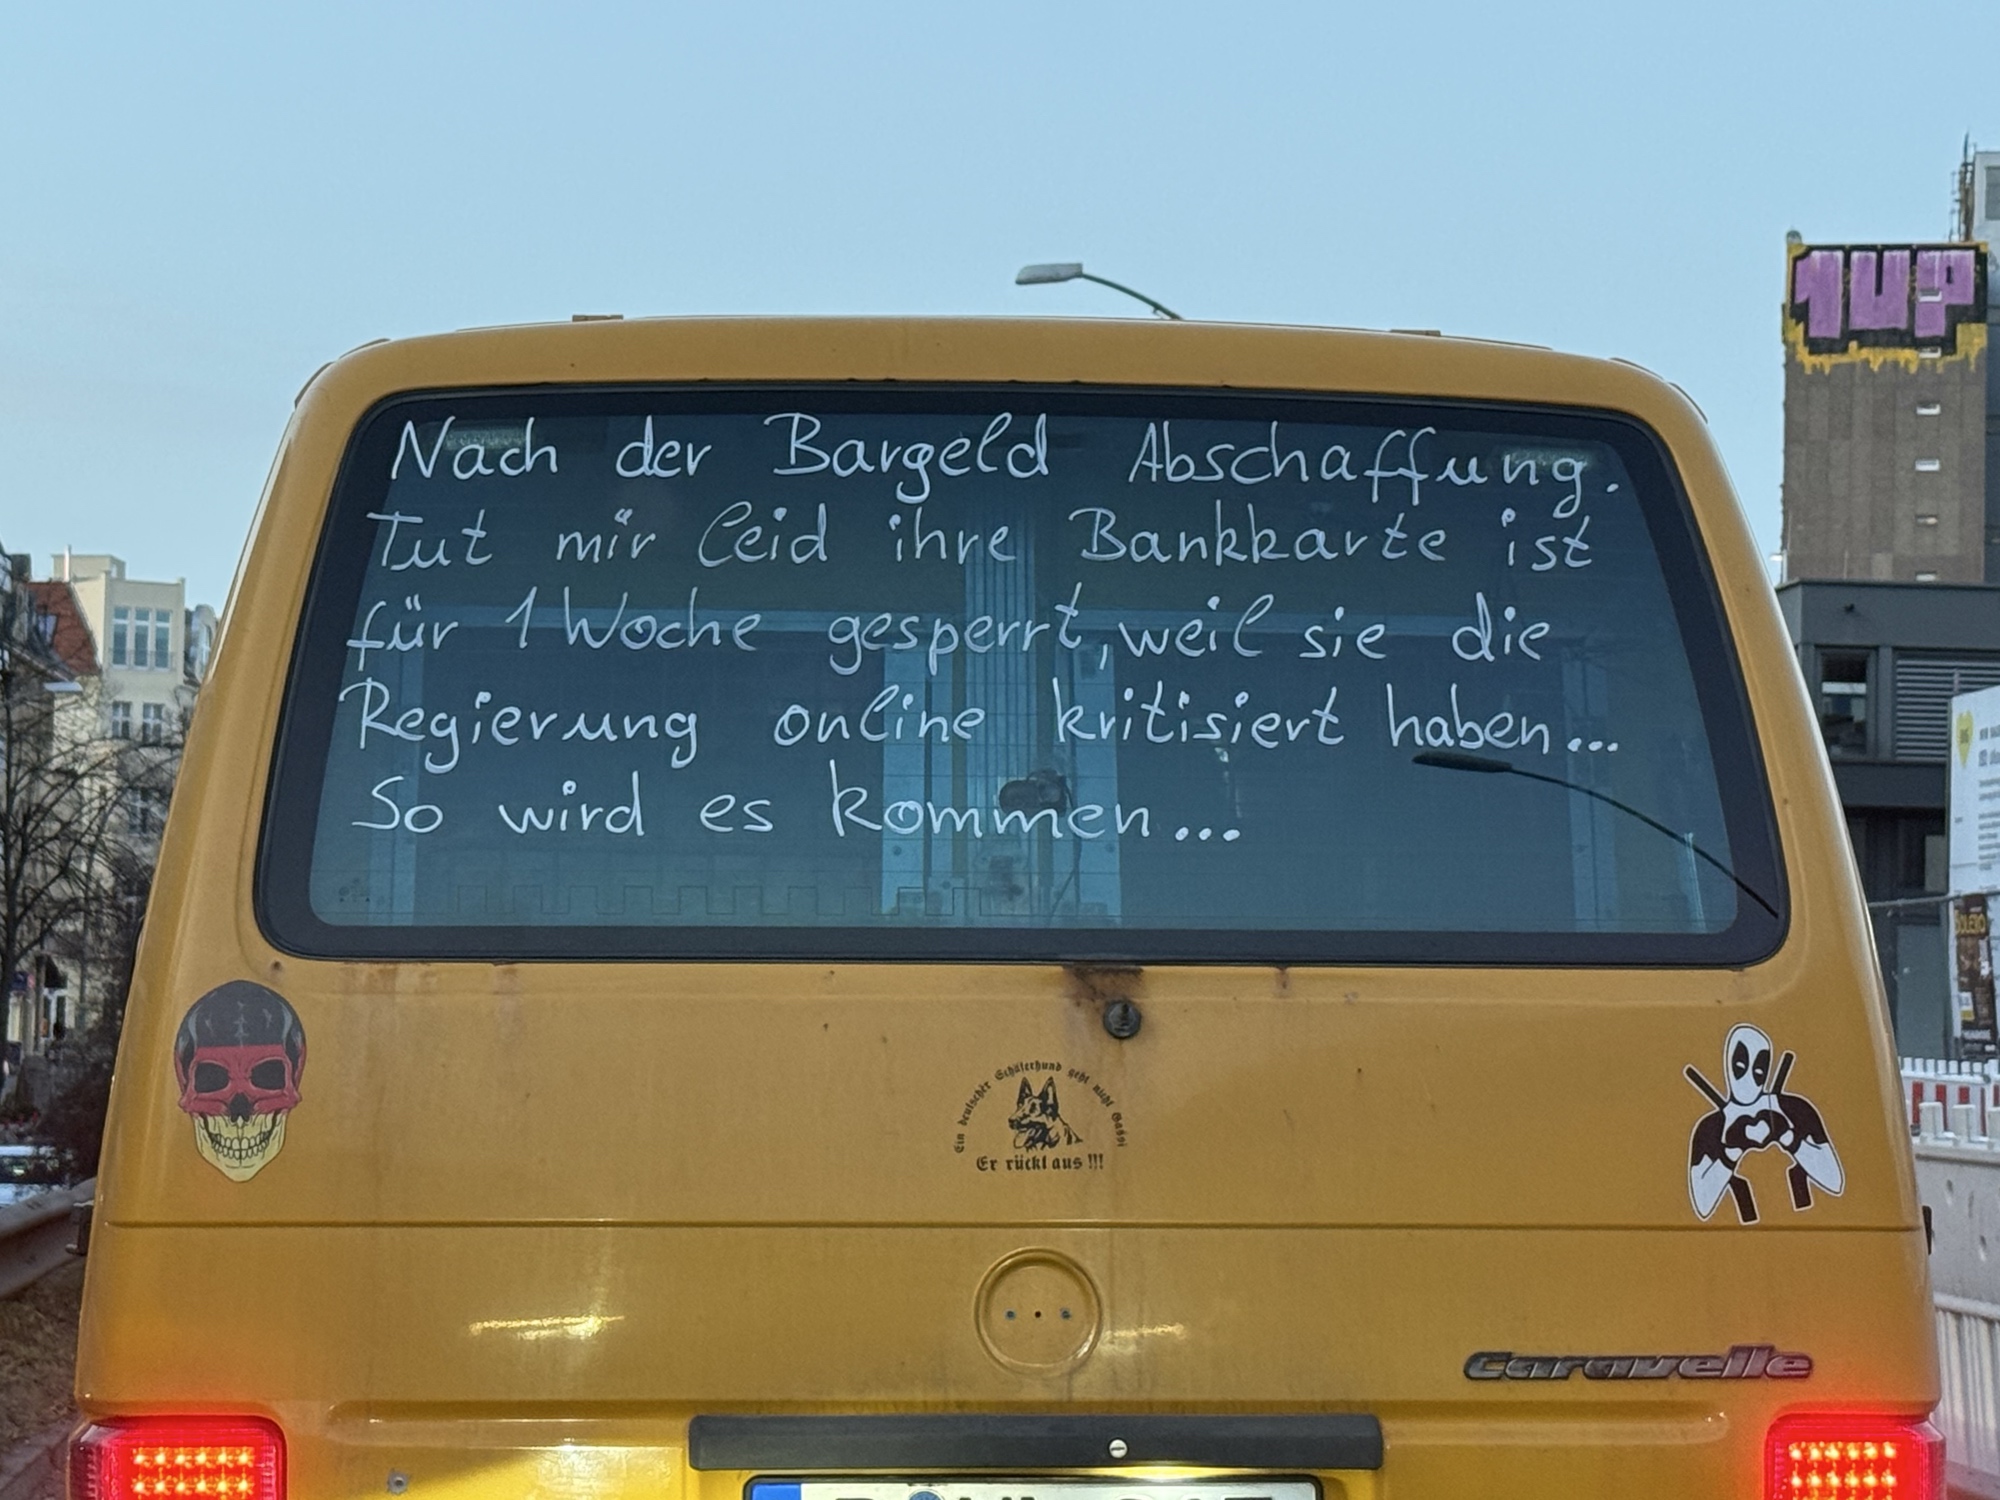 1UP
Nach der Bargeld Abschaffung.
Tut mir leid ihre Bankkarte ist
für 1 Woche gesperrt, weil sie die
Regierung online kritisiert haben...
So wird es kommen...
Ein deutscher Schäferhund geht nicht Gassi
Er rückt aus !!!
Caravelle